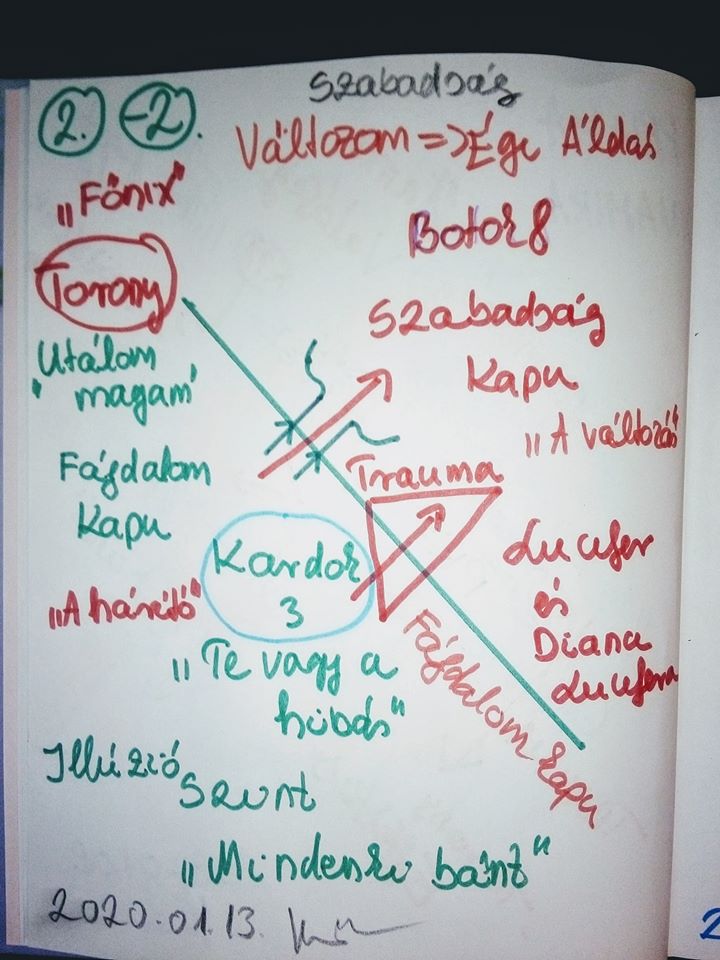 Szabadság
2. -2.
Változom => Égi Áldás
"Főnix"
Botok 8
Torony
Szabadság
Kapu
Utálom
"magam"
"A változás"
Fájdalom
Kapu
Trauma
Kardok
3
Lucifer
és
Diana
Lucifera
"A hárító"
Fájdalom kapu
"Te vagy a
hibás"
Illúzió
Szint
"Mindenki bánt"
2020.01.13.
2